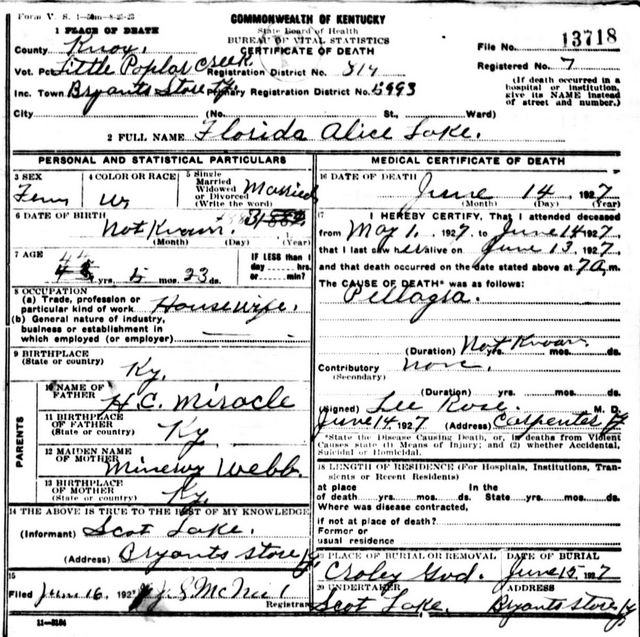 Form V. S. 1-50m-8-25-25
COMMONWEALTH OF KENTUCKY
State Board of Health
BUREAU OF VITAL STATISTICS
CERTIFICATE OF DEATH
File No. 13718
Registered No. 7
(If death occurred in a hospital or institution, give its NAME instead of street and number.)
1 PLACE OF DEATH
County Knox,
Vot. Pct. Little Poplar Creek Registration District No. 814
Inc. Town Bryants Store Ky. Primary Registration District No. 5993
City (No. St., Ward)
2 FULL NAME Florida Alice Lake.
PERSONAL AND STATISTICAL PARTICULARS
3 SEX Fem
4 COLOR OR RACE
5 Single Married Widowed or Divorced (Write the word) Married
6 DATE OF BIRTH Not Known.
(Month) (Day) (Year)
7 AGE 44 yrs. 5 mos. 23 ds.
IF LESS than 1 day hrs. or min.?
8 OCCUPATION
(a) Trade, profession or particular kind of work Housewife.
(b) General nature of industry, business or establishment in which employed (or employer)
9 BIRTHPLACE
(State or country) Ky.
PARENTS
10 NAME OF FATHER H.C. Miracle
11 BIRTHPLACE OF FATHER
(State or country) Ky
12 MAIDEN NAME OF MOTHER Webb.
13 BIRTHPLACE OF MOTHER
(State or country) Ky.
14 THE ABOVE IS TRUE TO THE BEST OF MY KNOWLEDGE
(Informant) Scot Lake.
(Address) Bryants Store Ky
15
Filed June 16, 1927 J. S. McNeil
Registrar
11-3184
MEDICAL CERTIFICATE OF DEATH
16 DATE OF DEATH
June 14 1927
(Month) (Day) (Year)
17 I HEREBY CERTIFY, That I attended deceased
from May 1, 1927, to June 14 1927
that I last saw her alive on June 13, 1927
and that death occurred on the date stated above at 7 a m.
The CAUSE OF DEATH* was as follows:
Pellagra.
(Duration) Not Known yrs. mos. ds.
Contributory none.
(Secondary)
(Duration) yrs. mos. ds.
(Signed) Lee Rose. M. D.
June 14, 1927 (Address) Carpenter Ky
*State the Disease Causing Death, or, in deaths from Violent Causes state (1) Means of Injury; and (2) whether Accidental, Suicidal or Homicidal.
18 LENGTH OF RESIDENCE (For Hospitals, Institutions, Transients or Recent Residents)
at place of death yrs. mos. ds. In the State yrs. mos. ds.
Where was disease contracted,
if not at place of death?
Former or usual residence
19 PLACE OF BURIAL OR REMOVAL Croley Gvd.
DATE OF BURIAL June 15, 1927
20 UNDERTAKER Scot Lake.
ADDRESS Bryants Store Ky